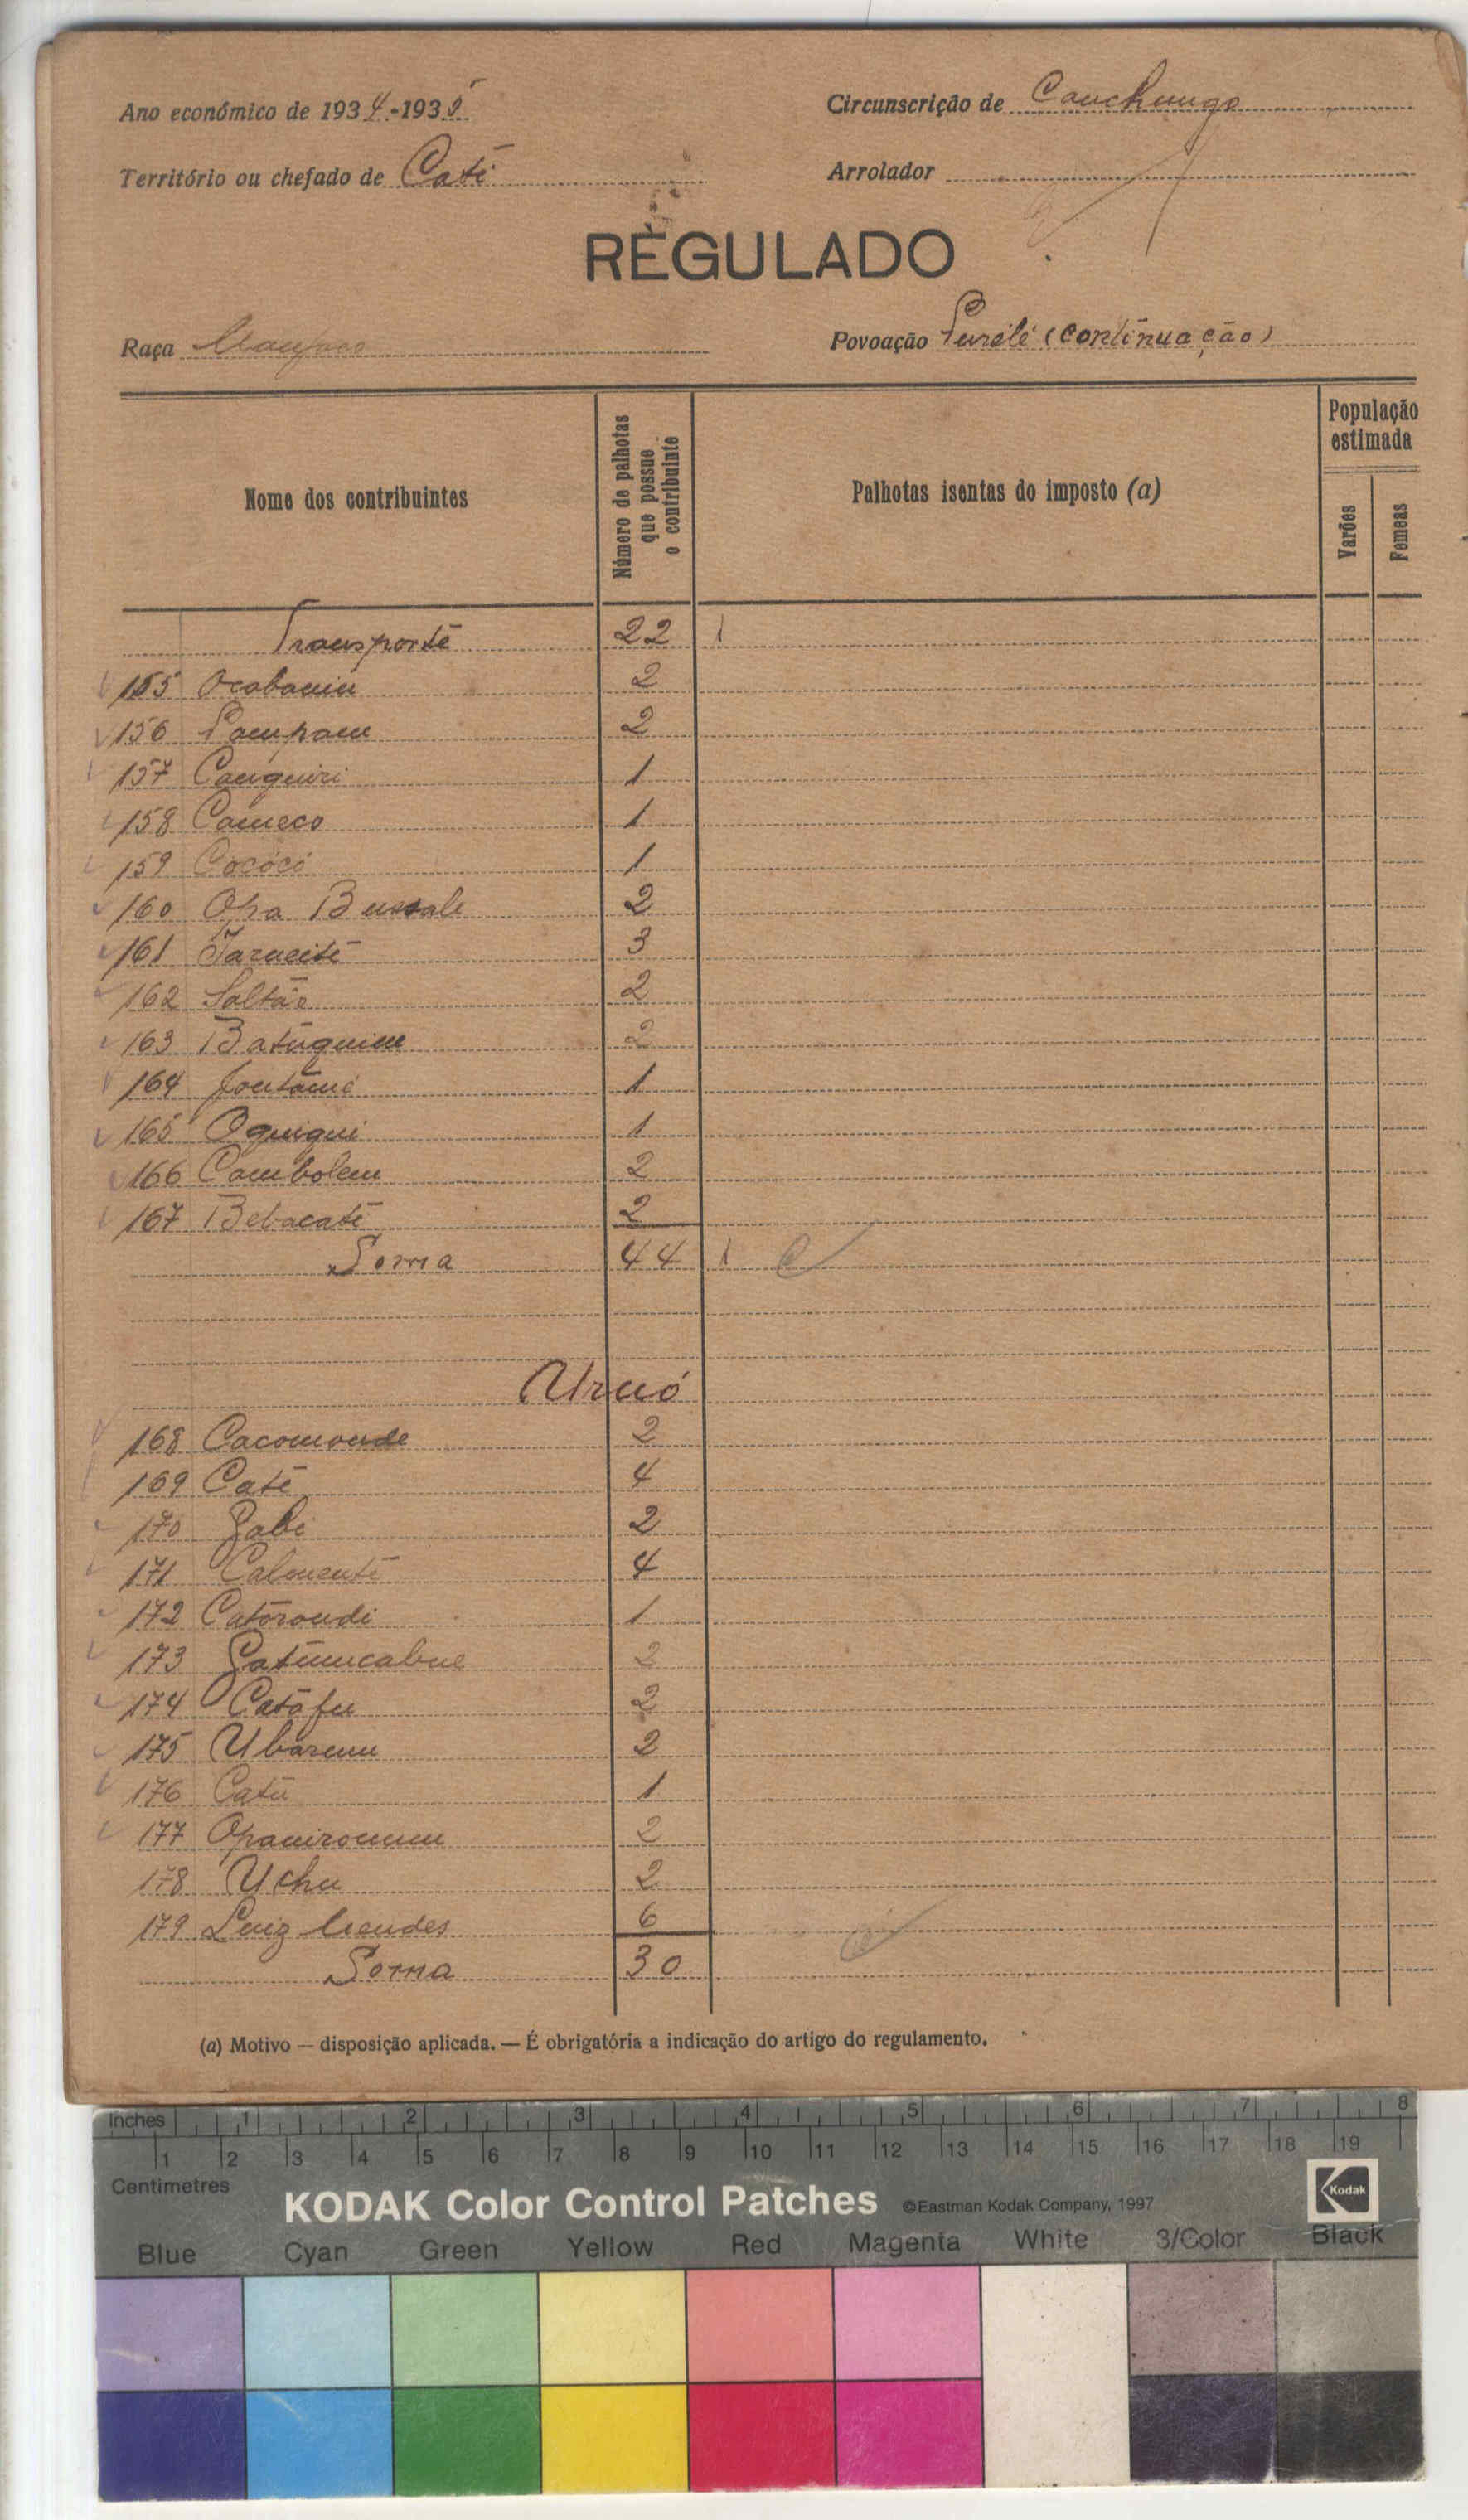 Ano económico de 1934-1935
Circunscrição de Canchungo
Território ou chefado de Caté
Arrolador
RÈGULADO
Raça Manjaco
Povoação (continuação)
Nome dos contribuintes
Número de palhotas que possue o contribuinte
Palhotas isentas do imposto (a)
População estimada
Varões
Femeas
Transporte 22 1
155 Ocabanim 2
156 Pampam 2
157 Canguiri 1
158 Cameco 1
159 Cococó 1
160 Opa Bussale 2
161 3
162 Saltão 2
163 Batuquim 2
164 1
165 Oquiqui 1
166 Cambolem 2
167 Bebacaté 2
Soma 44 1
168 Cacomonde 2
169 Caté 4
170 Gabi 2
171 4
172 Catorondi 1
173 2
174 Catáfu 2
175 2
176 Catu 1
177 2
178 Uchu 2
179 Luiz Mendes 6
Soma 30
(a) Motivo — disposição aplicada. — É obrigatória a indicação do artigo do regulamento.
Inches 1 2 3 4 5 6 7 8
1 2 3 4 5 6 7 8 9 10 11 12 13 14 15 16 17 18 19
Centimetres
KODAK Color Control Patches ©Eastman Kodak Company, 1997 Kodak
Blue Cyan Green Yellow Red Magenta White 3/Color Black